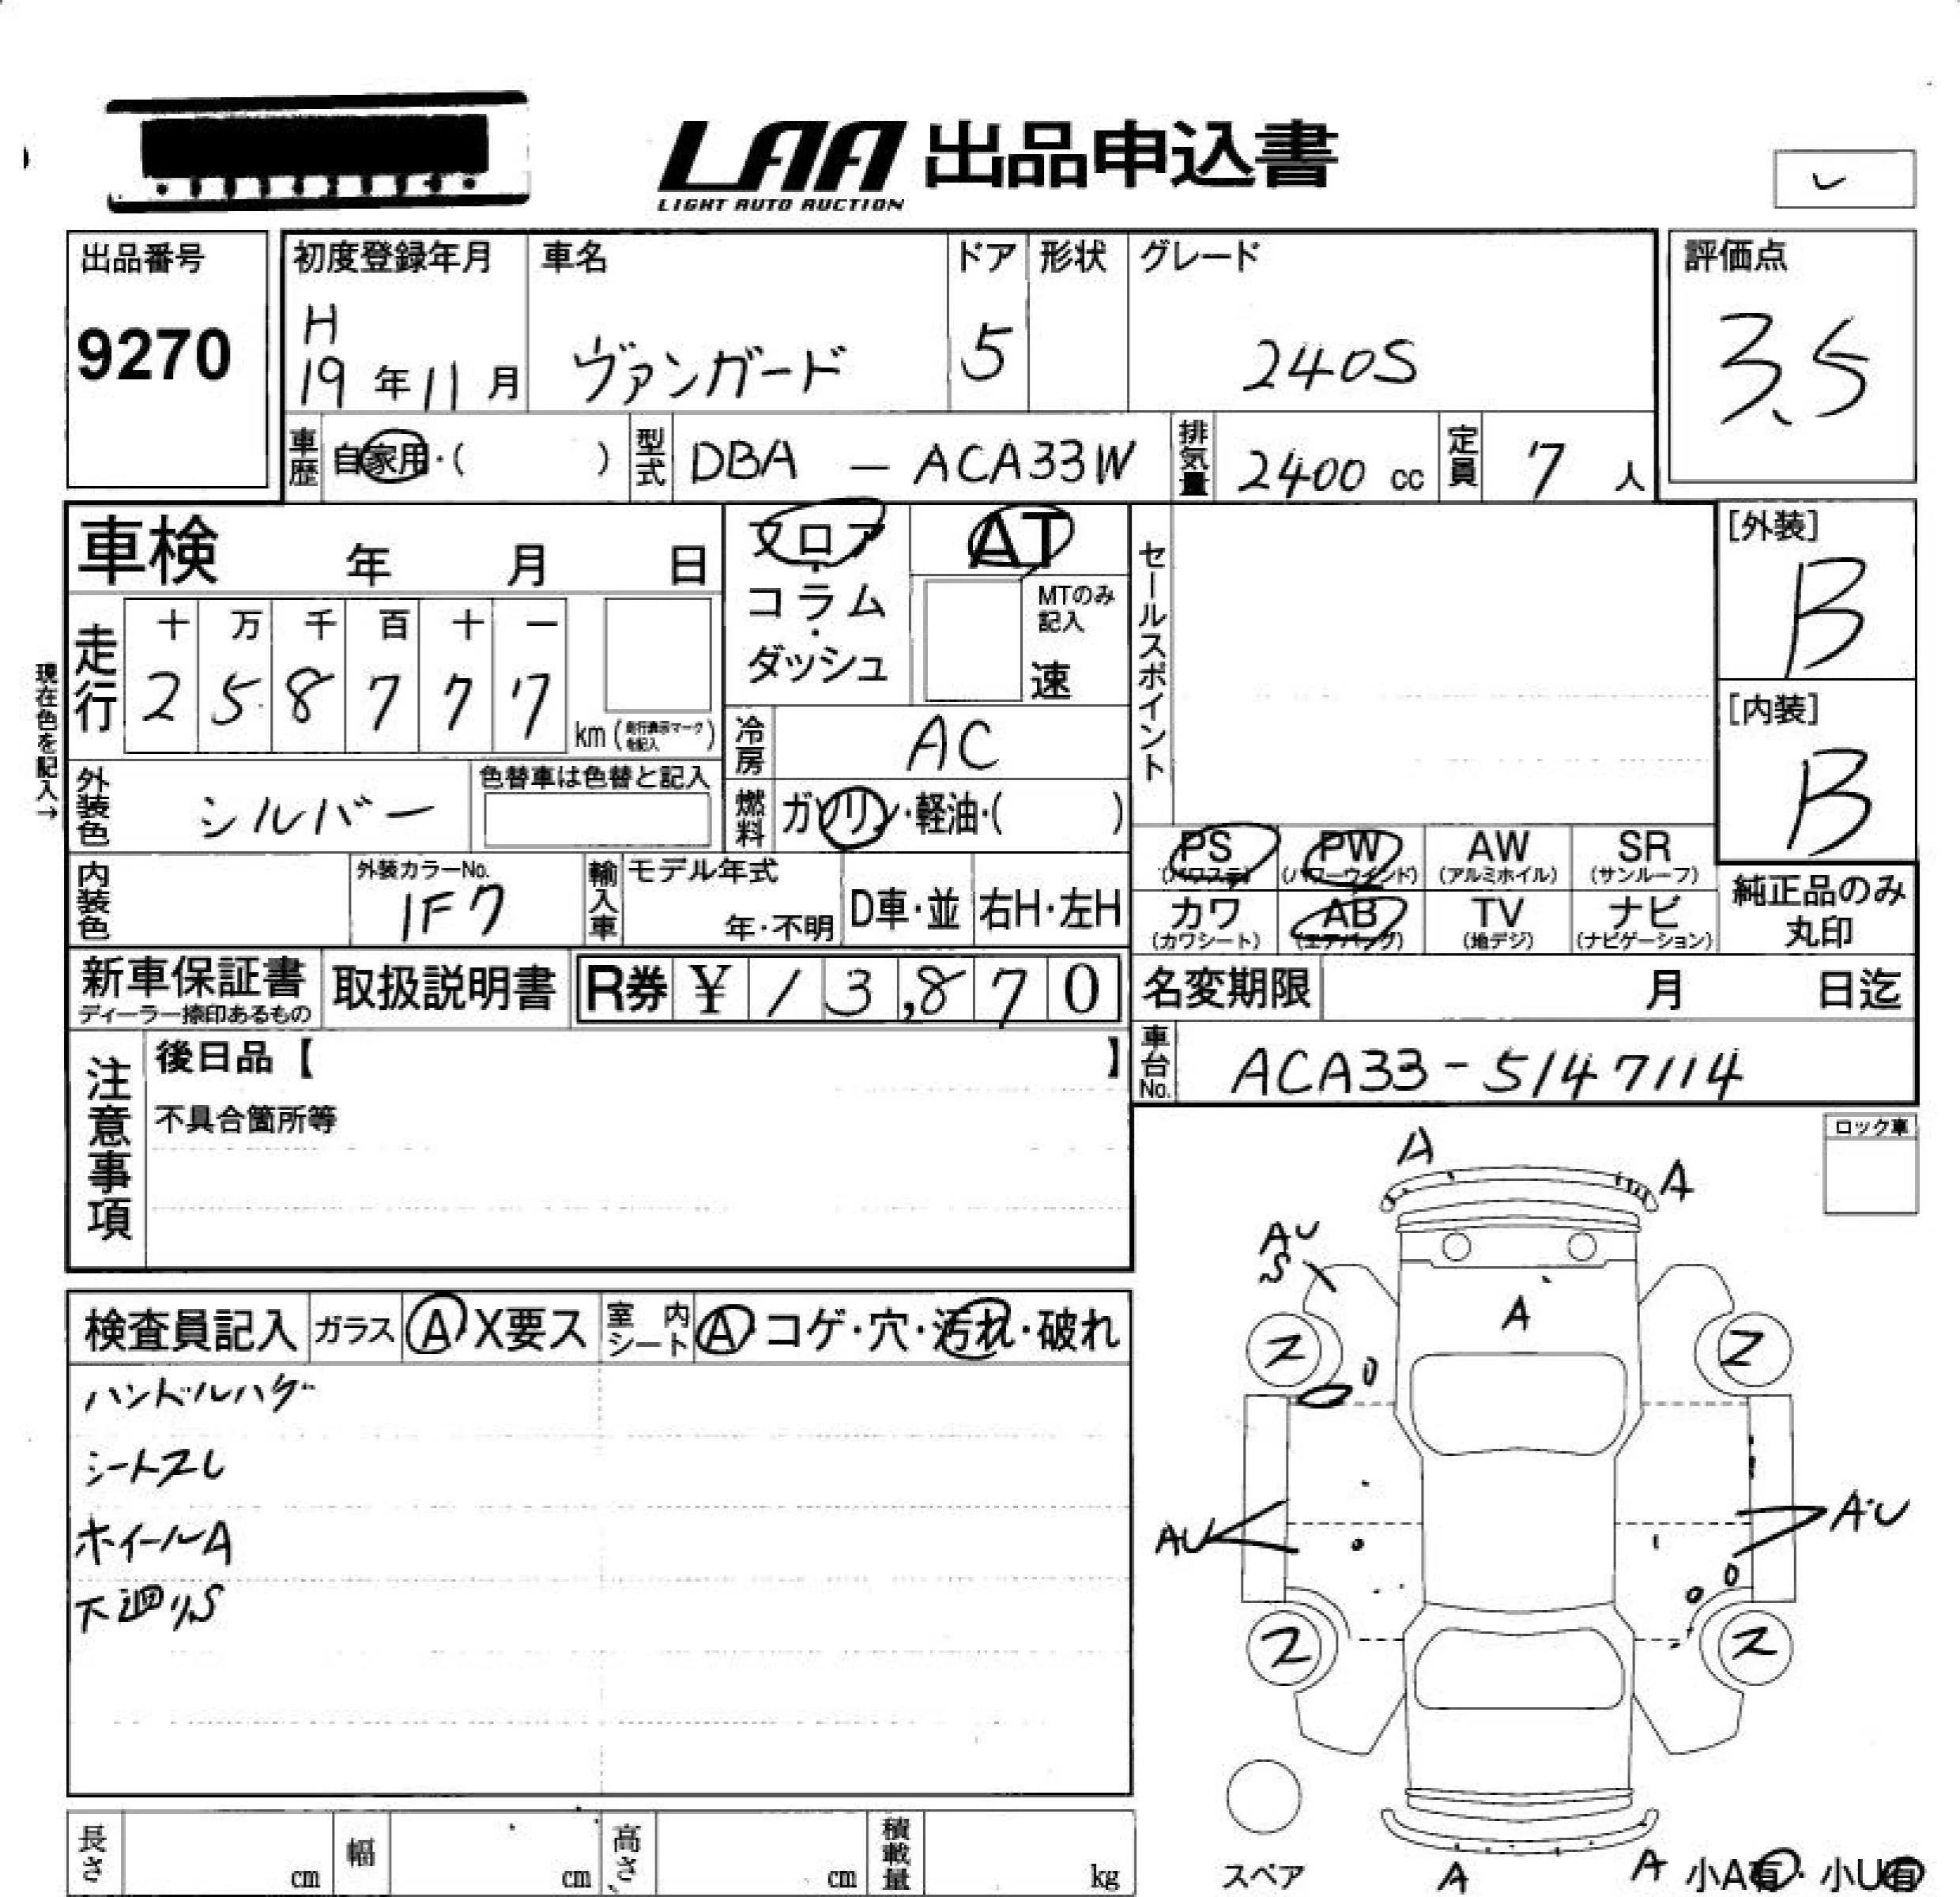 LAA 出品申込書
LIGHT AUTO AUCTION
出品番号
9270
初度登録年月
H
19年11月
車名
ヴァンガード
ドア
5
形状
グレード
240S
評価点
3.5
車歴 自家用・( )
型式 DBA - ACA33W
排気量 2400 cc
定員 7人
車検 年 月 日
フロア・コラム・ダッシュ
AT
MTのみ記入
速
セールスポイント
[外装]
B
[内装]
B
現在色を記入→
走行
十 万 千 百 十 一
2 5 8 7 7 7
km (走行表示マークを記入)
冷房 AC
外装色 シルバー
色替車は色替と記入
燃料 ガソリン・軽油・( )
PS (パワステ)
PW (パワーウインド)
AW (アルミホイル)
SR (サンルーフ)
カワ (カワシート)
AB (エアバッグ)
TV (地デジ)
ナビ (ナビゲーション)
純正品のみ丸印
内装色
外装カラーNo.
1F7
輸入車
モデル年式
年・不明
D車・並
右H・左H
新車保証書
ディーラー捺印あるもの
取扱説明書
R券 ¥ 13,870
名変期限 月 日迄
車台No. ACA33-5147114
注意事項
後日品【 】
不具合箇所等
ロック車
検査員記入
ガラス A X要ス
室内シート A・コゲ・穴・汚れ・破れ
ハンドルハゲ
シートスレ
ホイールA
下廻りS
A
A
AU
S
A
ス
ス
AU
AU
ス
ス
スペア
A
A
小A有・小U有
長さ cm
幅 cm
高さ cm
積載量 kg